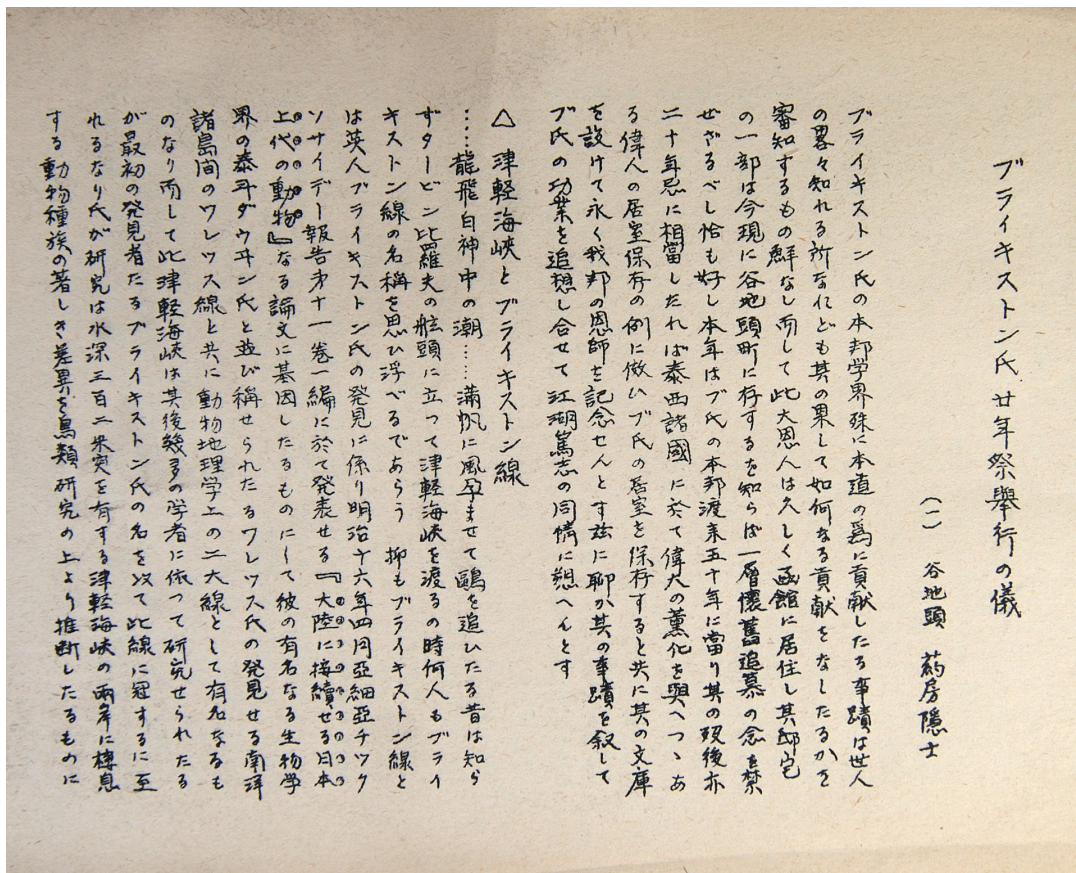 ブライキストン氏廿年祭舉行の儀
（一）　谷地頭　葯房隱士
ブライキストン氏の本邦学界殊に本道の爲に貢献したる事蹟は世人
の畧々知れる所なれども其の果して如何なる貢献をなしたるかを
審知するもの鮮なし而して此大恩人は久しく函館に居住し其邸宅
の一部は今現に谷地頭町に存するを知らば一層懷舊追慕の念を禁
ぜざるべし恰も好し本年はブ氏の本邦渡来五十年に當り其の歿後亦
二十年忌に相當したれば泰西諸國に於て偉大の薫化を與へつゝあ
る偉人の居室保存の例に倣ひブ氏の居室を保存すると共に其の文庫
を設けて永く我邦の恩師を記念せんとす玆に聊か其の事蹟を叙して
ブ氏の功業を追想し合せて江湖篤志の同情に愬へんとす
△　津軽海峡とブライキストン線
……龍飛白神中の潮……満帆に風孕ませて鷗を追ひたる昔は知ら
ずタービン比羅夫の舷頭に立つて津軽海峡を渡るの時何人もブライ
キストン線の名稱を思ひ浮べるであらう　抑もブライキストン線と
は英人ブライキストン氏の発見に係り明治十六年四月亞細亞チック
ソサイデー報告第十一巻一編に於て発表せる『大陸に接續せる日本
上代の動物』なる論文に基因したるものにして彼の有名なる生物学
界の泰斗ダウヰン氏と並び稱せられたるワレツス氏の発見せる南洋
諸島間のワレツス線と共に動物地理学上の二大線として有名なるも
のなり而して此津軽海峡は其後幾多の学者に依つて研究せられたる
が最初の発見者たるブライキストン氏の名を以て此線に冠するに至
れるなり氏が研究は水深三百二米突を有する津軽海峡の兩岸に棲息
する動物種族の著しき差異を鳥類研究の上より推断したるものに